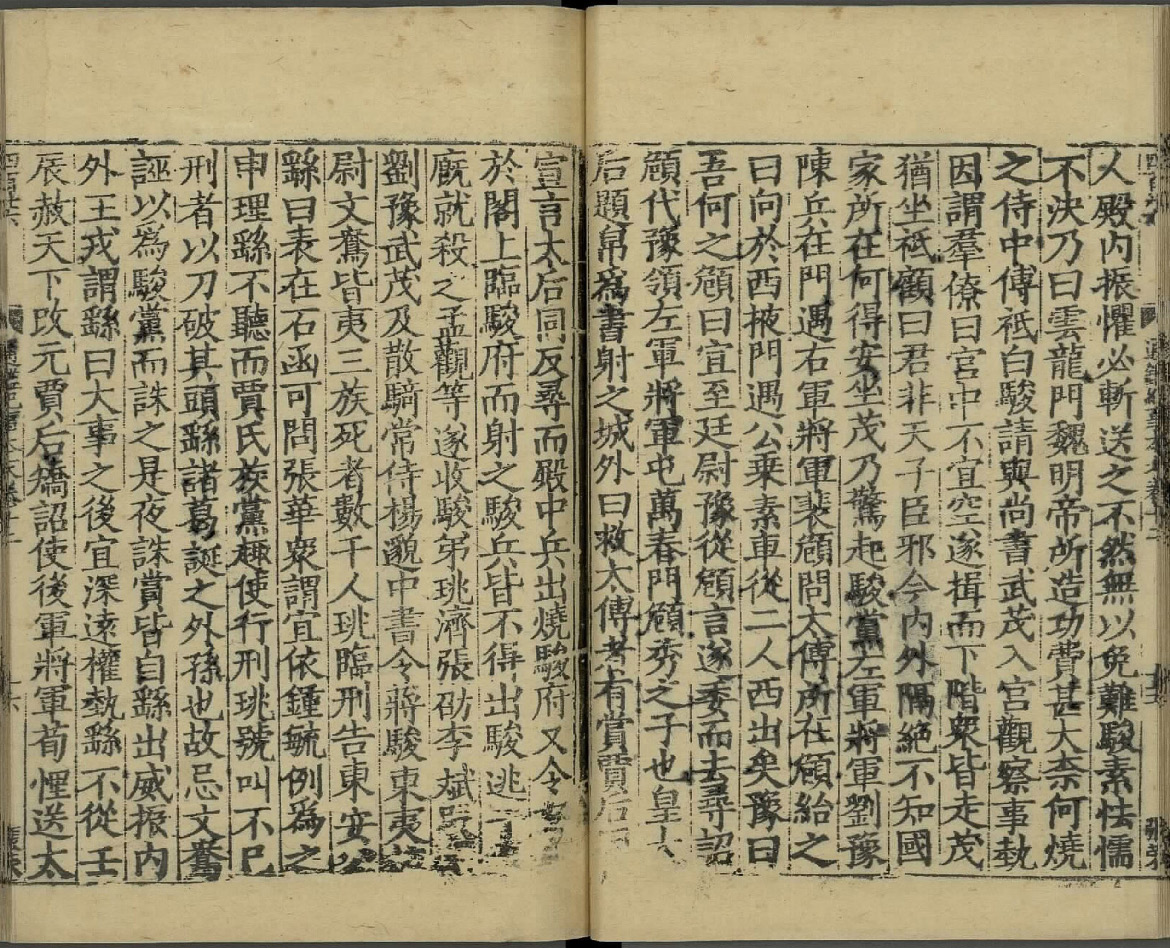 人殿内振懼必斬送之不然無以免難駿素怯懦
不決乃曰雲龍門魏明帝所造功費甚大柰何燒
之侍中傅祗白駿請與尚書武茂入宮觀察事埶
因謂羣僚曰宮中不宜空遂揖而下階衆皆走茂
猶坐祗顧曰君非天子臣邪今内外隔絶不知國
家所在何得安坐茂乃驚起駿黨左軍將軍劉豫
陳兵在門遇右軍將軍裴頠問太傅所在頠紿之
曰向於西掖門遇公乗素車從二人西出矣豫曰
吾何之頠曰宜至廷尉豫從頠言遂委而去尋詔
頠代豫領左軍將軍屯萬春門頠秀之子也皇太
后題帛爲書射之城外曰救太傅者有賞賈后
宣言太后同反尋而殿中兵出燒駿府又令
於閣上臨駿府而射之駿兵皆不得出駿逃
廐就殺之孟觀等遂收駿弟珧濟張劭李斌
劉豫武茂及散騎常侍楊邈中書令蔣駿東夷校
尉文鴦皆夷三族死者數千人珧臨刑告東安公
繇曰表在石函可問張華衆謂宜依鍾毓例爲之
申理繇不聽而賈氏族黨趣使行刑珧號叫不已
刑者以刀破其頭繇諸葛誕之外孫也故忌文鴦
誣以爲駿黨而誅之是夜誅賞皆自繇出威振内
外王戎謂繇曰大事之後宜深遠權埶繇不從壬
辰赦天下改元賈后矯詔使後軍將軍荀悝送太